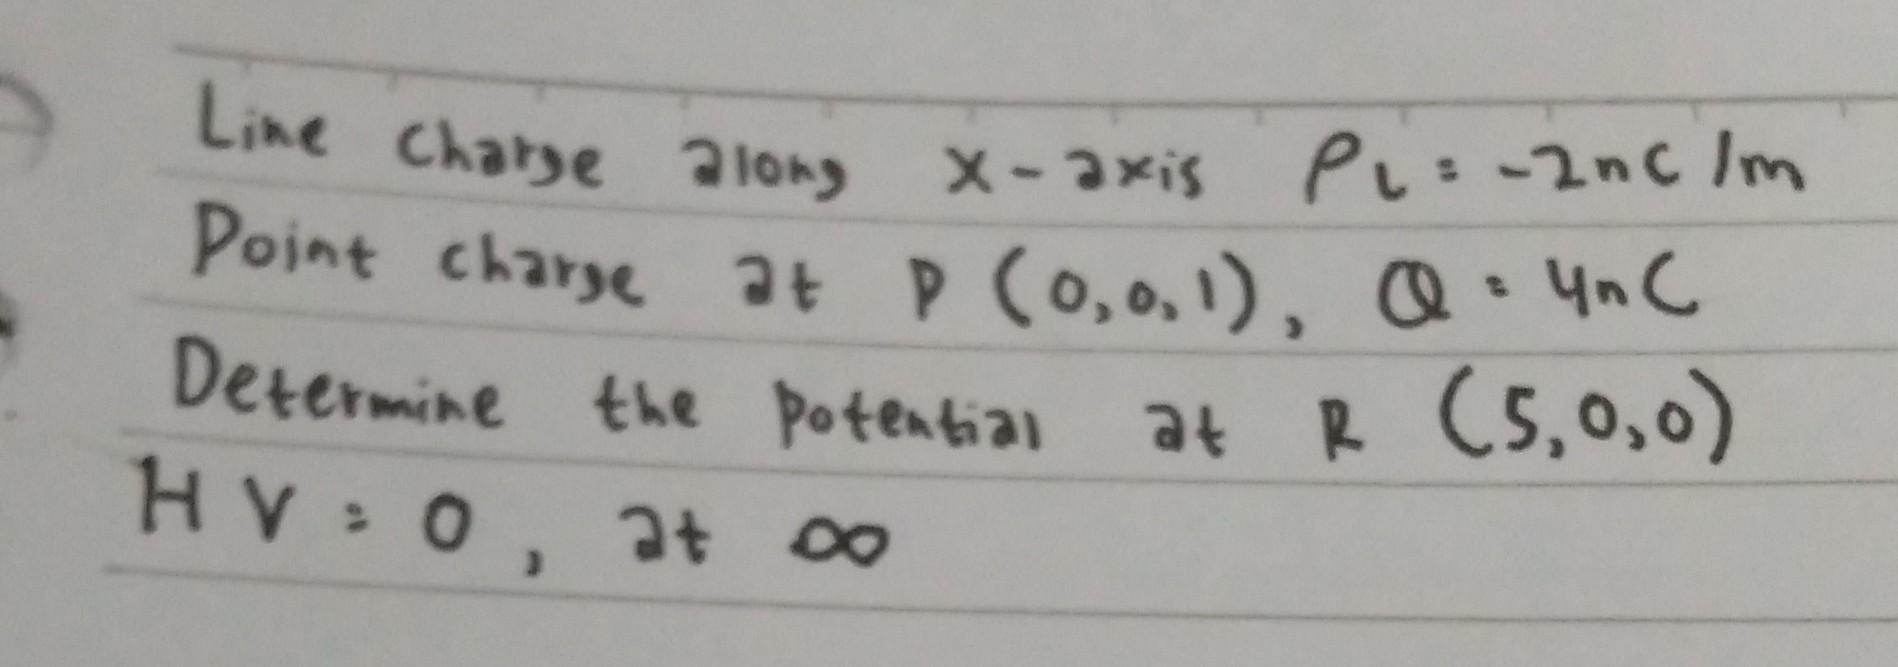 Line charge along x-axis ρL = -2nC/m
Point charge at P (0,0,1), Q = 4nC
Determine the potential at R (5,0,0)
H V = 0, at ∞